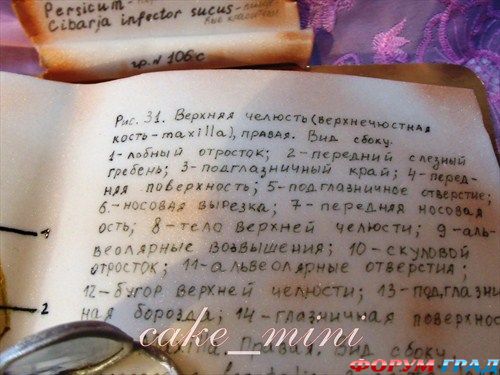 Persicum -
Cibarja infector sucus -
гр. N 106 с
Рис. 31. Верхняя челюсть (верхнечюстная
кость - maxilla), правая. Вид сбоку.
1 - лобный отросток; 2 - передний слезный
гребень; 3 - подглазничный край; 4 - перед-
няя поверхность; 5 - подглазничное отверстие;
6. - носовая вырезка; 7 - передняя носовая
ость; 8 - тело верхней челюсти; 9 - аль-
веолярные возвышения; 10 - скуловой
отросток; 11 - альвеолярные отверстия;
12 - бугор верхней челюсти; 13 - подглазнич
ная борозда; 14 - глазничная поверхнос
правая. Вид сбоку.
2
cake_mini
ФОРУМ-ГРАД